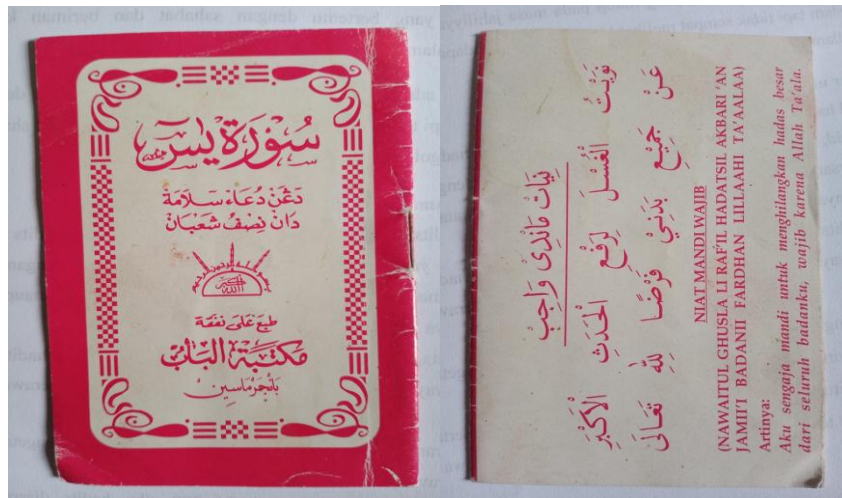 سُوْرَةُ يٰسٓ
دڠن دُعَاء سَلَامَة
دَان نِصْفُ شَعْبَان
طبع على نفقة
مكتبة الباب
بانجرماسين
نِيَاتْ مَانْدِى وَاجِبْ
نَوَيْتُ الْغُسْلَ لِرَفْعِ الْحَدَثِ الْأَكْبَرِ
عَنْ جَمِيْعِ بَدَنِيْ فَرْضًا لِلّٰهِ تَعَالَى
NIAT MANDI WAJIB
(NAWAITUL GHUSLA LI RAF'IL HADATSIL AKBARI 'AN
JAMII'I BADANII FARDHAN LILLAAHI TA'AALAA)
Artinya:
Aku sengaja mandi untuk menghilangkan hadas besar
dari seluruh badanku, wajib karena Allah Ta'ala.